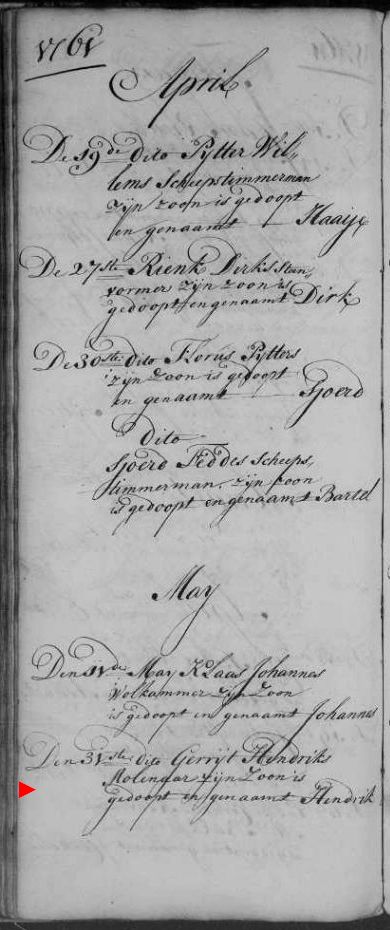 1761
April
De 19de Dito Pytter Wil,,
lems Scheepstimmerman
zijn zoon is gedoopt
en genaamt Haaije
De 27ste Rienk Dirks Steen,,
vormer zijn zoon is
gedoopt en genaamt Dirk
De 30ste dito Florus Pytters
zijn zoon is gedoopt
en genaamt Sjoerd
Dito
Sjoerd Feddes Scheeps,,
timmerman zijn zoon
is gedoopt en genaamt Bartel
May
Den May Klaas Johannes
Wolkammer zijn zoon
is gedoopt en genaamt Johannes
Den 31ste dito Gerryt Hendriks
Molenaar zijn Zoon is
gedoopt en genaamt Hendrik